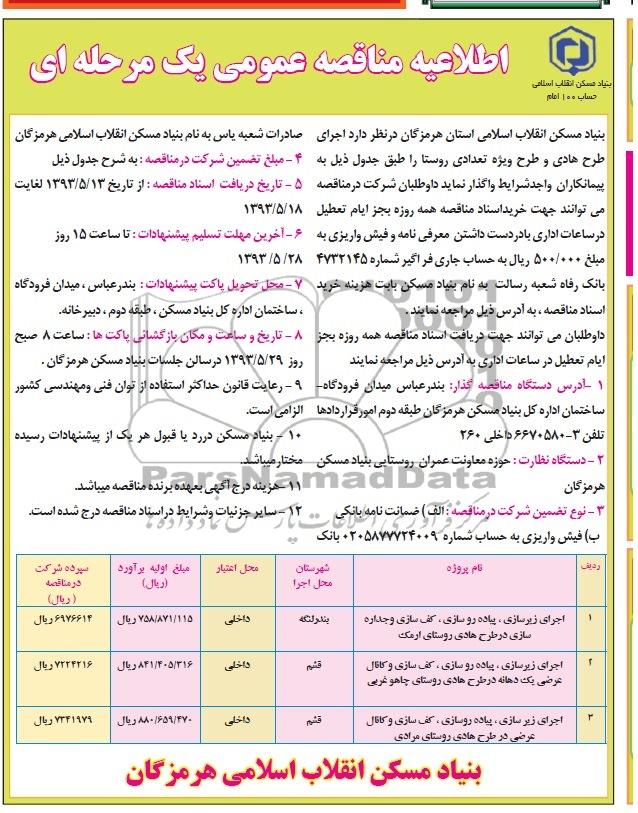 اطلاعیه مناقصه عمومی یک مرحله ای
بنیاد مسکن انقلاب اسلامی
حساب ۱۰۰ امام
بنیاد مسکن انقلاب اسلامی استان هرمزگان درنظر دارد اجرای
طرح هادی و طرح ویژه تعدادی روستا را طبق جدول ذیل به
پیمانکاران واجدشرایط واگذار نماید داوطلبان شرکت درمناقصه
می توانند جهت خریداسناد مناقصه همه روزه بجز ایام تعطیل
درساعات اداری بادردست داشتن معرفی نامه و فیش واریزی به
مبلغ ۵۰۰/۰۰۰ ریال به حساب جاری فراگیر شماره ۴۷۳۲۱۴۵
بانک رفاه شعبه رسالت به نام بنیاد مسکن بابت هزینه خرید
اسناد مناقصه ، به آدرس ذیل مراجعه نمایند .
داوطلبان می توانند جهت دریافت اسناد مناقصه همه روزه بجز
ایام تعطیل در ساعات اداری به آدرس ذیل مراجعه نمایند
۱ -آدرس دستگاه مناقصه گذار: بندرعباس میدان فرودگاه-
ساختمان اداره کل بنیاد مسکن هرمزگان طبقه دوم امورقراردادها
تلفن ۳-۶۶۷۰۵۸۰ داخلی ۲۶۰
۲ - دستگاه نظارت : حوزه معاونت عمران روستایی بنیاد مسکن
هرمزگان
۳ - نوع تضمین شرکت درمناقصه : الف ) ضمانت نامه بانکی
ب) فیش واریزی به حساب شماره ۰۲۰۵۸۷۷۷۲۴۰۰۹ بانک
صادرات شعبه یاس به نام بنیاد مسکن انقلاب اسلامی هرمزگان
۴ - مبلغ تضمین شرکت درمناقصه : به شرح جدول ذیل
۵ - تاریخ دریافت اسناد مناقصه : از تاریخ ۱۳۹۳/۵/۱۳ لغایت
۱۳۹۳/۵/۱۸
۶ - آخرین مهلت تسلیم پیشنهادات : تا ساعت ۱۵ روز
۱۳۹۳ /۵/ ۲۸
۷ - محل تحویل پاکت پیشنهادات : بندرعباس ، میدان فرودگاه
، ساختمان اداره کل بنیاد مسکن ، طبقه دوم ، دبیرخانه .
۸ - تاریخ و ساعت و مکان بازگشائی پاکت ها : ساعت ۸ صبح
روز ۱۳۹۳/۵/۲۹ درسالن جلسات بنیاد مسکن هرمزگان .
۹ - رعایت قانون حداکثر استفاده از توان فنی ومهندسی کشور
الزامی است.
۱۰ - بنیاد مسکن دررد یا قبول هر یک از پیشنهادات رسیده
مختار میباشد.
۱۱-هزینه درج آگهی بعهده برنده مناقصه میباشد.
۱۲ - سایر جزئیات وشرایط دراسناد مناقصه درج شده است.
ParsNamadData
ردیف نام پروژه شهرستان محل اجرا محل اعتبار مبلغ اولیه برآورد (ریال) سپرده شرکت درمناقصه ( ریال)
۱ اجرای زیرسازی ، پیاده رو سازی ، کف سازی وجداره سازی درطرح هادی روستای ارمک بندرلنگه داخلی ۷۵۸/۸۷۱/۱۱۵ ریال ۶۹۷۶۶۱۴ ریال
۲ اجرای زیرسازی ، پیاده رو سازی ، کف سازی وکانال عرضی یک دهانه درطرح هادی روستای چاهو غربی قشم داخلی ۸۴۱/۴۰۵/۳۱۶ ریال ۷۲۲۴۲۱۶ ریال
۳ اجرای زیر سازی ، پیاده روسازی ، کف سازی وکانال عرضی در طرح هادی روستای مرادی قشم داخلی ۸۸۰/۶۵۹/۴۷۰ ریال ۷۳۴۱۹۷۹ ریال
بنیاد مسکن انقلاب اسلامی هرمزگان